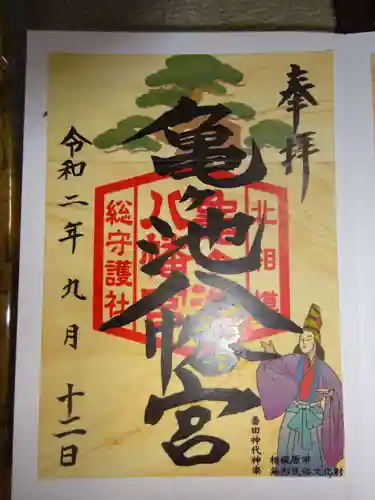 奉拝
亀ヶ池八幡宮
北相模
総守護社
令和二年九月十二日
番田神代神楽
相模原市
無形民俗文化財